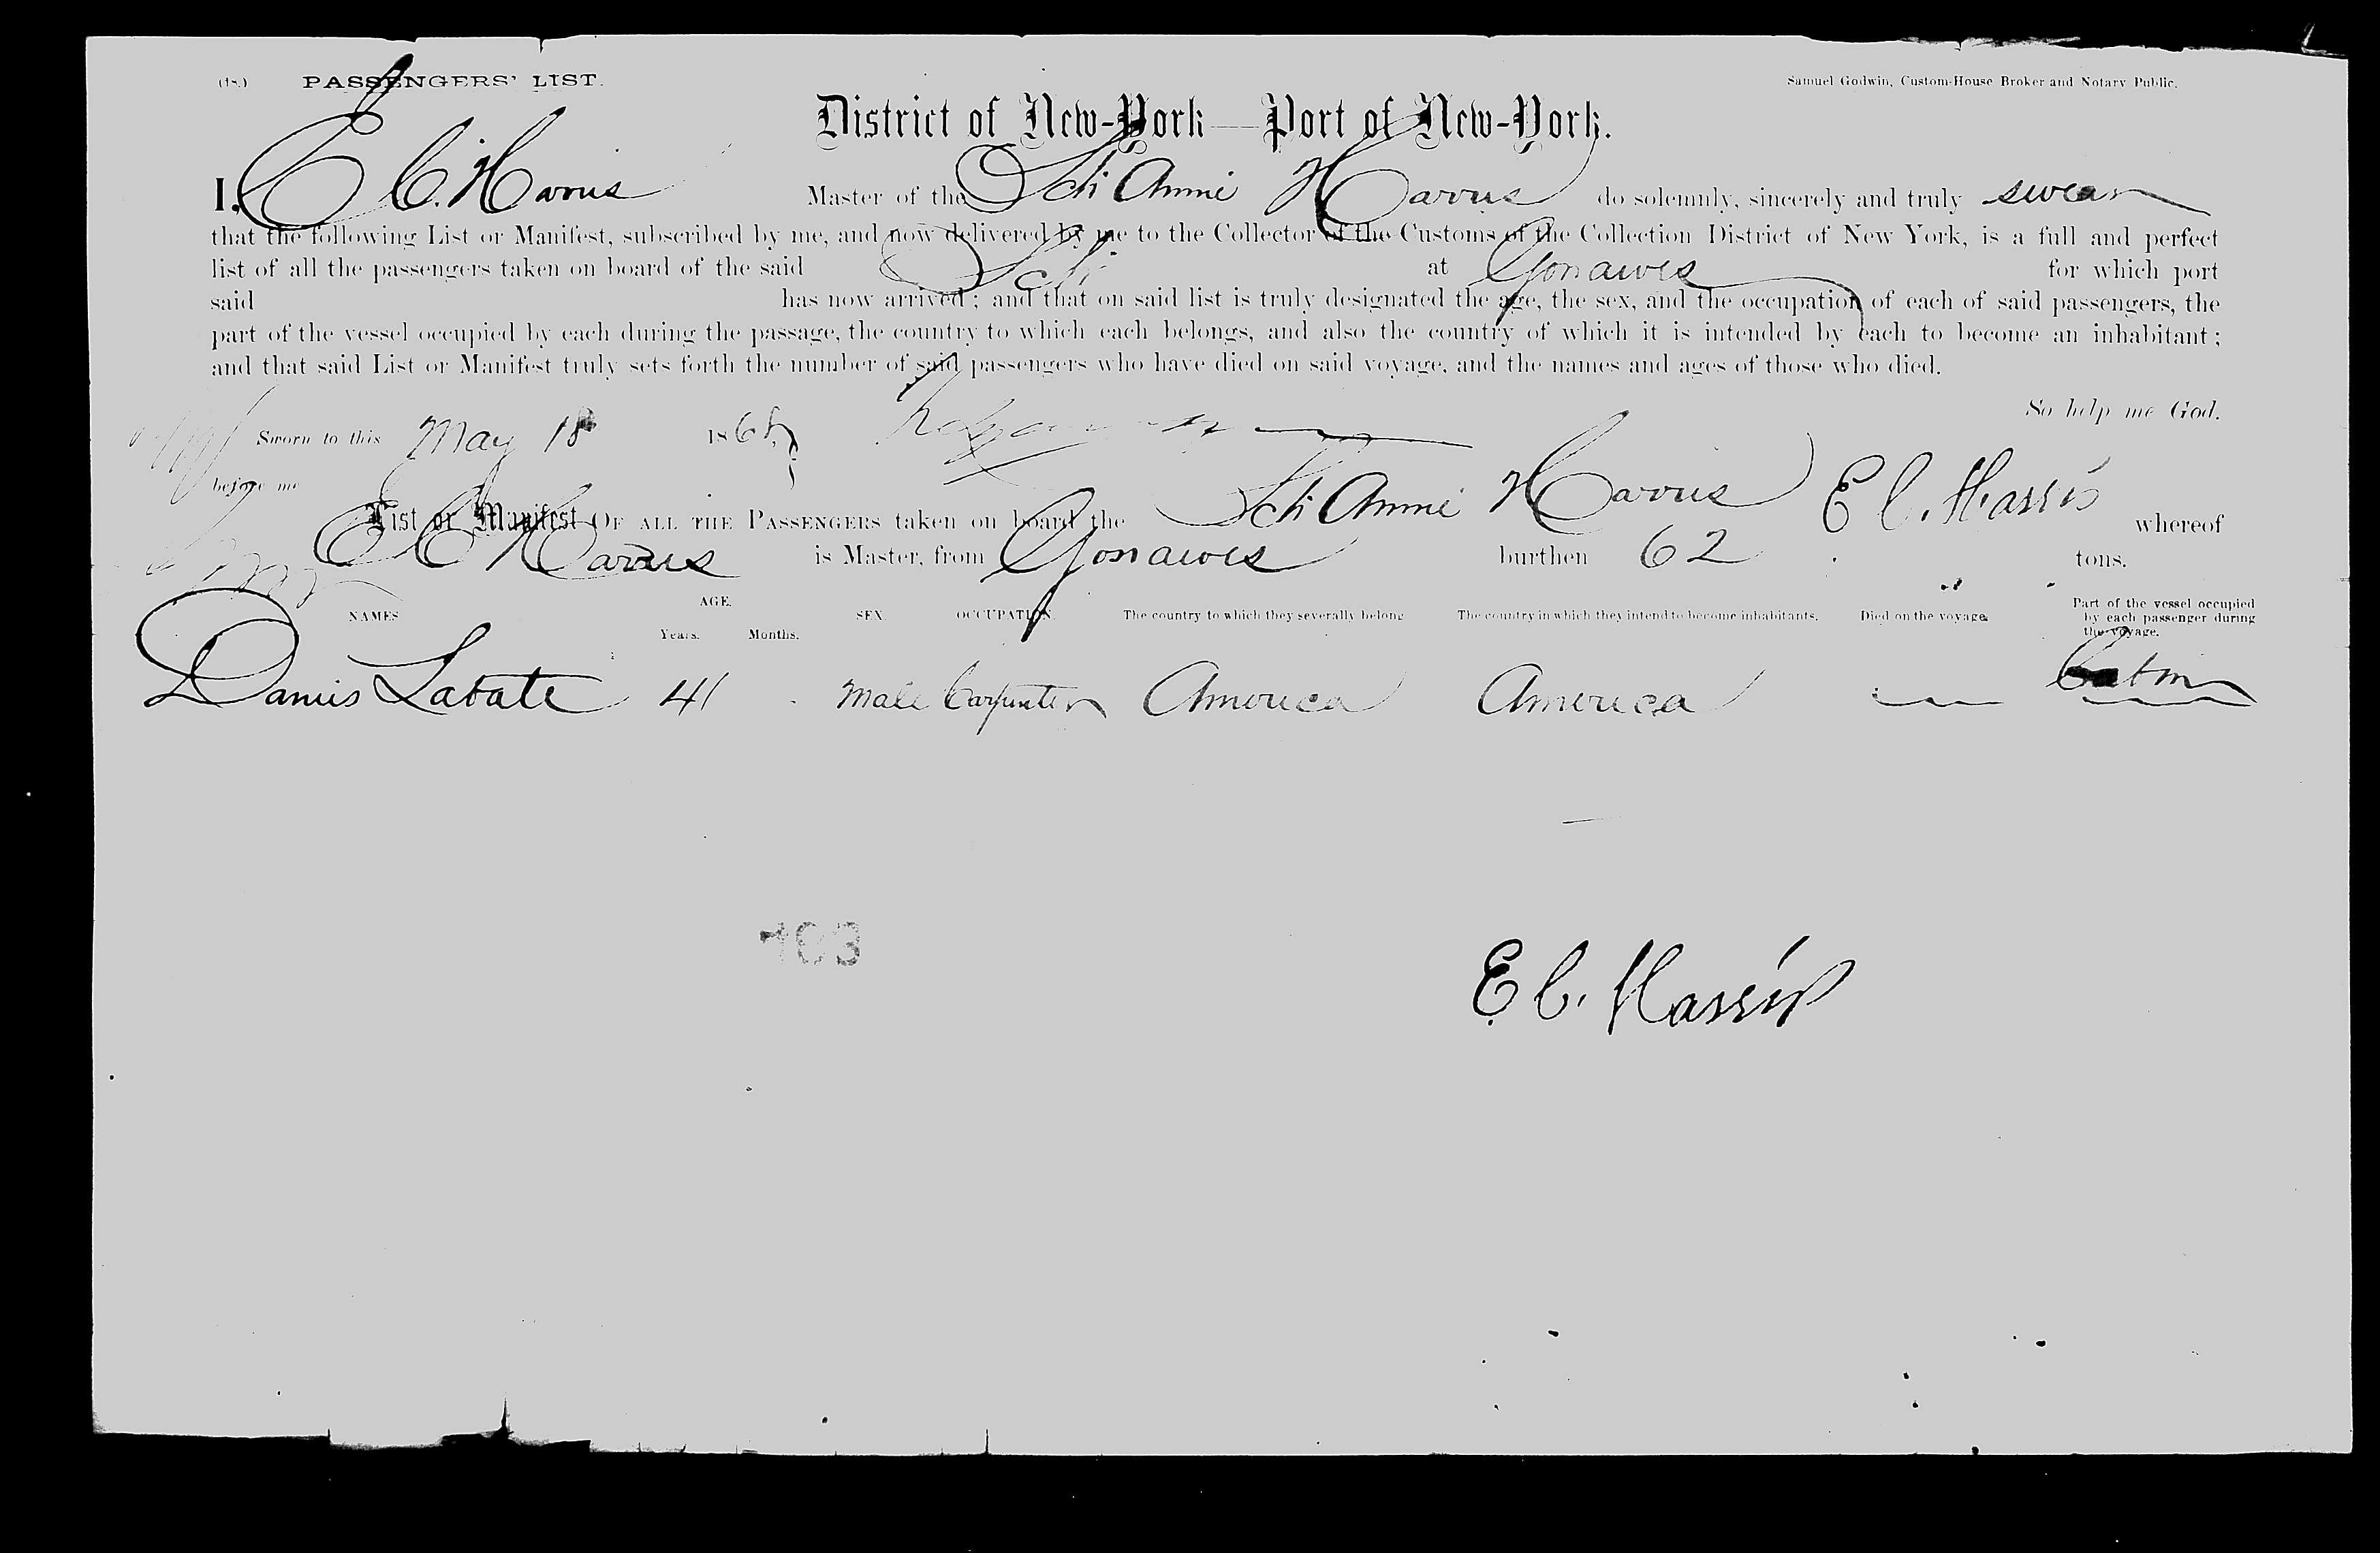 (18.) PASSENGERS' LIST. Samuel Godwin, Custom-House Broker and Notary Public.
District of New-York—Port of New-York.
I, E C. Harris Master of the Sch Annie Harris do solemnly, sincerely and truly swear
that the following List or Manifest, subscribed by me, and now delivered by me to the Collector of the Customs of the Collection District of New York, is a full and perfect
list of all the passengers taken on board of the said Sch at Gonaives for which port
said has now arrived; and that on said list is truly designated the age, the sex, and the occupation of each of said passengers, the
part of the vessel occupied by each during the passage, the country to which each belongs, and also the country of which it is intended by each to become an inhabitant;
and that said List or Manifest truly sets forth the number of said passengers who have died on said voyage, and the names and ages of those who died.
So help me God.
Sworn to this May 18 186
before me E C. Harris
List or Manifest OF ALL THE PASSENGERS taken on board the Sch Annie Harris whereof
E C Harris is Master, from Gonaives burthen 62 tons.
NAMES AGE. Years. Months. SEX. OCCUPATION. The country to which they severally belong The country in which they intend to become inhabitants. Died on the voyage. Part of the vessel occupied by each passenger during the voyage.
Labate 41 Male Carpenter America America Cabin
103
E C. Harris